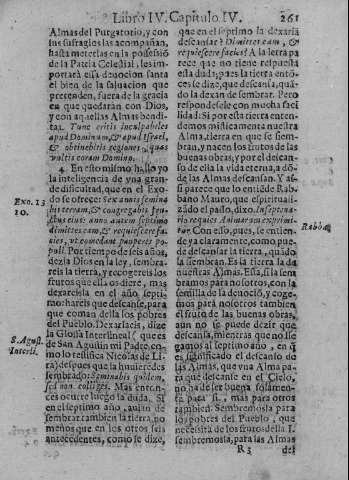 Libro IV. Capitulo IV. 261
Almas del Purgatorio, y con
sus sufragios las acompañan,
hasta meterlas en la possession
de la Patria Celestial, les im
portarà esta deuocion santa
el bien de la saluacion que
pretenden, fuera de la gracia
en que quedaràn con Dios,
y con aquellas Almas bendi-
tas. Tunc eritis inculpabiles
apud Dominum, & apud Israel,
& obtinebitis regiones, quas
vultis coram Domino.
4. En esto mismo hallo yo
la inteligencia de vna gran-
de dificultad, que en el Exo-
do se ofrece: Sex annis semina
bis terram, & congregabis fru-
ctus eius: anno autem septimo
dimittes eam, & requiescere fa-
cies, vt comedant pauperes po-
puli. Por tiempo de seis años,
dezia Dios en la ley, sembra-
reis la tierra, y recogereis los
frutos que ella os diere, mas
dexareisla en el año septi-
mo: hareis que descanse, para
que coman della los pobres
del Pueblo. Dexarlais, dize
la Glossa Interlineal (que es
de San Agustin mi Padre, co-
mo lo testifica Nicolas de Li-
ra) despues que la huuieredes
sembrado: Seminabis quidem,
sed non colliges. Mas enton-
ces ocurre luego la duda. Si
en el septimo año, auian de
sembrar tambien la tierra, no
menos que en los otros seis
antecedentes, como se dize,
Exo. 13
10.
S. Agust.
Interli.
que en el septimo la dexaria
descansar? Dimittes eam, &
requiescere facies? A la letra pa
rece que no tiene respuesta
esta duda; pues la tierra enton-
ces se dize, que descansa, quan-
do la dexan de sembrar. Pero
respondesele con mucha faci
lidad: Si por esta tierra enten-
demos misticamente nuestra
Alma, tierra en que se siem-
bran, y nacen los frutos de las
buenas obras; y por el descan-
so de ella la vida eterna, a dō-
de las Almas descansan. Y as-
si parece que lo entiēde Rab-
bano Mauro, que espirituali-
zado el passo, dixo. In septena-
rio requies Animarum exprimi-
tur. Con esso, pues, se entien-
de ya claramente, como pue-
de descansar la tierra, quādo
la siembran. Es la tierra la de
nuestras Almas. Essa, si la sem
bramos para nosotros, con la
semilla de la deuociō, y coge-
mos para nosotros tambien
el fruto de las buenas obras,
aun no se puede dezir que
descansa, mientras que no lle-
gamos al septimo año, en q̄
es significado el descanso de
las Almas, que vna Alma pa-
ra que descanse en el Cielo,
no ha de ser buena solamen-
te para si, mas para otros
tambien. Sembremosla para
los pobres del Pueblo, que
necessita de los frutos della.
sembremosla, para las Almas
Rabba.
R 3 del